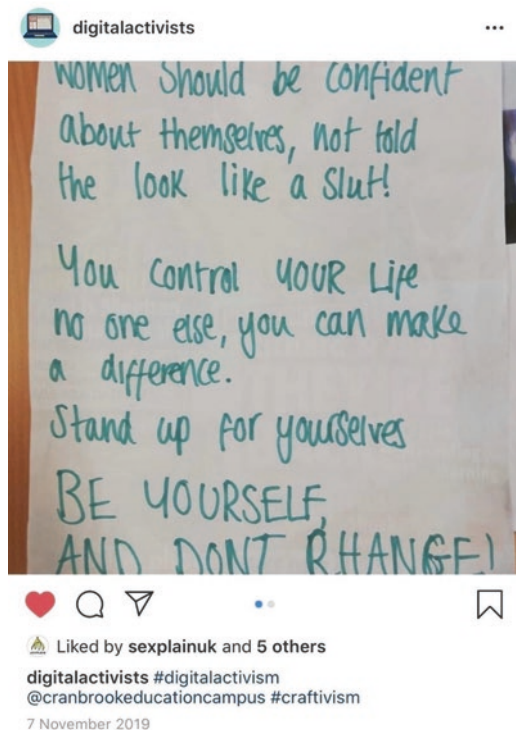 digitalactivists
women Should be confident
about themselves, not told
the look like a Slut!
You Control YOUR Life
no one else, you can make
a difference.
Stand up for yourselves
BE YOURSELF
AND DONT CHANGE!
Liked by sexplainuk and 5 others
digitalactivists #digitalactivism
@cranbrookeducationcampus #craftivism
7 November 2019